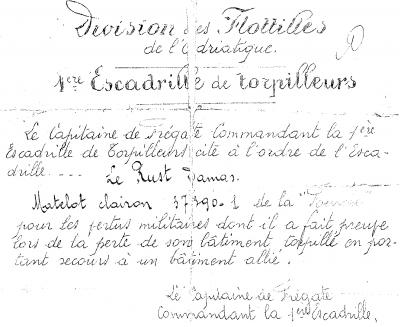 Division des Flottilles
de l'Adriatique.
1ère Escadrille de torpilleurs
Le Capitaine de Frégate Commandant la 1ère
Escadrille de Torpilleurs cite à l'ordre de l'Esca-
drille ....
Le Rust Damas.
Matelot clairon 37390-1 de la
pour les vertus militaires dont il a fait preuve
lors de la perte de son bâtiment, torpillé en por-
tant secours à un bâtiment allié.
Le Capitaine de Frégate
Commandant la 1ère Escadrille,